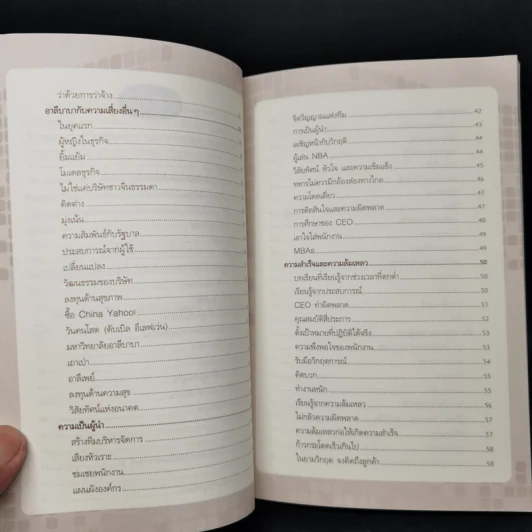 ว่าด้วยการว่าจ้าง
อาลีบาบากับความเสี่ยงอื่น ๆ
ในยุคแรก
ผู้หญิงในธุรกิจ
ยิ้มแย้ม
โมเดลธุรกิจ
ไม่ใช่แค่บริษัทชาวจีนธรรมดา
คิดต่าง
มุ่งเน้น
ความสัมพันธ์กับรัฐบาล
ประสบการณ์จากผู้ใช้
เปลี่ยนแปลง
วัฒนธรรมของบริษัท
ลงทุนด้านสุขภาพ
ซื้อ China Yahoo!
วันคนโสด (ดับเบิล อีเลฟเว่น)
มหาวิทยาลัยอาลีบาบา
เถาเป่า
อาลีเพย์
ลงทุนด้านความสุข
วิสัยทัศน์แห่งอนาคต
ความเป็นผู้นำ
สร้างทีมบริหารจัดการ
เสียงหัวเราะ
ชมเชยพนักงาน
แผนผังองค์กร
จิตวิญญาณแห่งทีม 42
การเป็นผู้นำ 43
เผชิญหน้ากับวิกฤติ 44
ผู้เล่น NBA 44
วิสัยทัศน์ หัวใจ และความเข้มแข็ง 45
ทหารไม่ควรมีกล้องส่องทางไกล 46
ความโดดเดี่ยว 47
การตัดสินใจและความผิดพลาด 47
การศึกษาของ CEO 48
เอาใจใส่พนักงาน 49
MBAs 49
ความสำเร็จและความล้มเหลว 50
บทเรียนที่เรียนรู้จากช่วงเวลาที่ตกต่ำ 50
เรียนรู้จากประสบการณ์ 50
CEO ทำผิดพลาด 51
คุณสมบัติสี่ประการ 51
ตั้งเป้าหมายที่ปฏิบัติได้จริง
ความพึงพอใจของพนักงาน
รับมือวิกฤตการณ์ 54
คิดบวก 55
ทำงานหนัก 55
เรียนรู้จากความล้มเหลว 56
ไม่กลัวความผิดพลาด 57
ความล้มเหลวก่อให้เกิดความสำเร็จ 57
ก้าวกระโดดเร็วเกินไป 58
ในยามวิกฤต จงคิดถึงลูกค้า 58